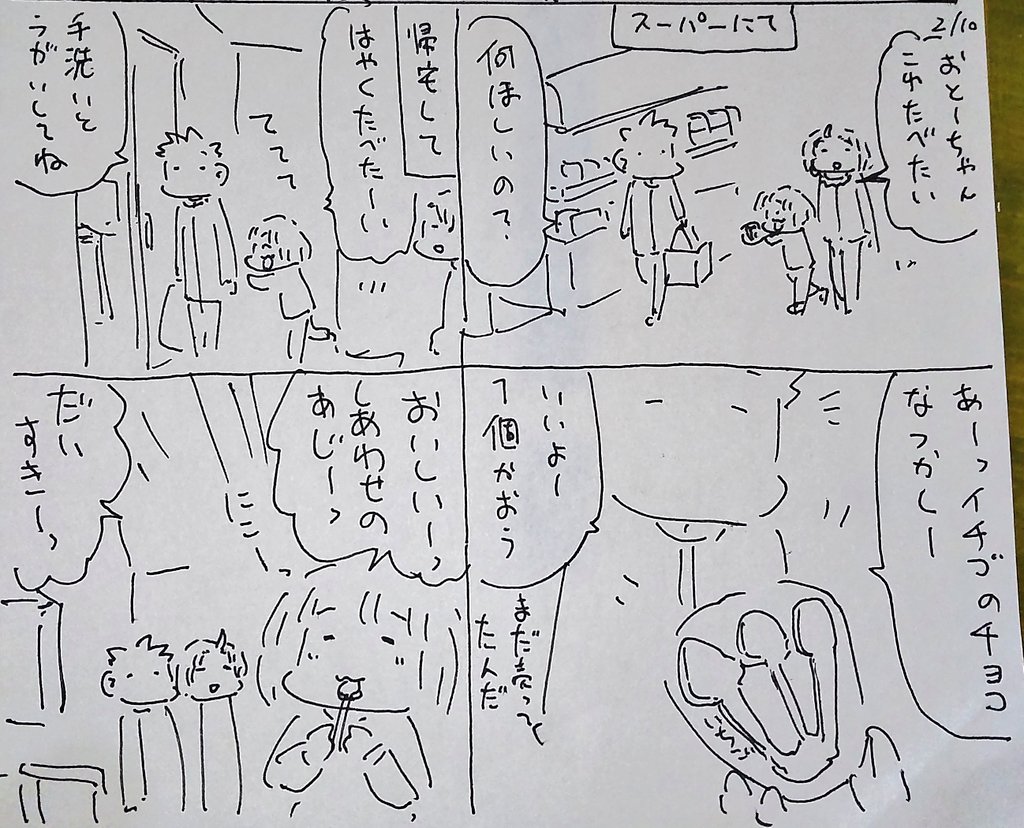 2/10
スーパーにて
おとーちゃん
これたべたい
何ほしいの?
あーっイチゴのチョコ
なつかしー
いいよー
1個かおう
まだ売って
たんだ
帰宅して
はやくたべたーい
ててて
手洗いと
うがいしてね
おいしいーっ
しあわせの
あじーっ
にこ
だい
すきーっ